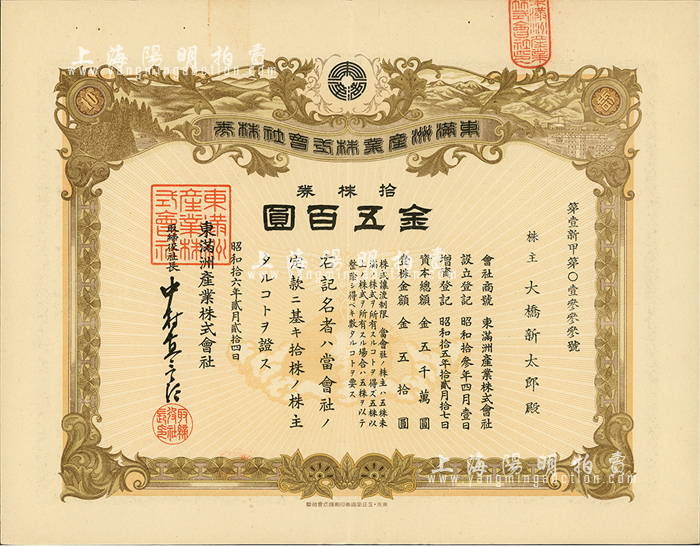 上海陽明拍賣
www.yangmingauction.com
東滿洲產業株式會社株券
拾株券
金五百圓
第壹新甲第〇壹參參參號
株主 大橋新太郎殿
會社商號 東滿洲產業株式會社
設立登記 昭和拾參年四月壹日
增資登記 昭和拾五年拾貳月拾七日
資本總額 金五千萬圓
壹株金額 金五拾圓
株式讓渡制限 當會社ノ株主ハ五株未
滿ノ株式ヲ所有スルコトヲ得ズ五株以
上ノ株式ヲ所有スル場合ハ五株ヲ以テ
整除シ得ベキ數タルコトヲ要ス
右記名者ハ當會社ノ
定款ニ基キ拾株ノ株主
タルコトヲ證ス
昭和拾六年貳月貳拾四日
東滿洲產業株式會社
取締役社長
東滿洲
產業株
式會社
取締
役社
長印
上海陽明拍賣
www.yangmingauction.com